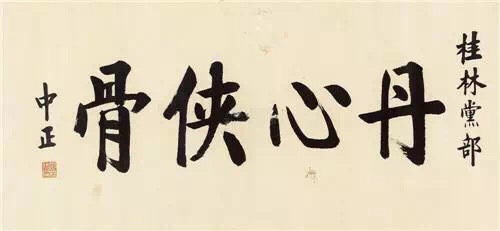 桂林黨部
丹心俠骨
中正